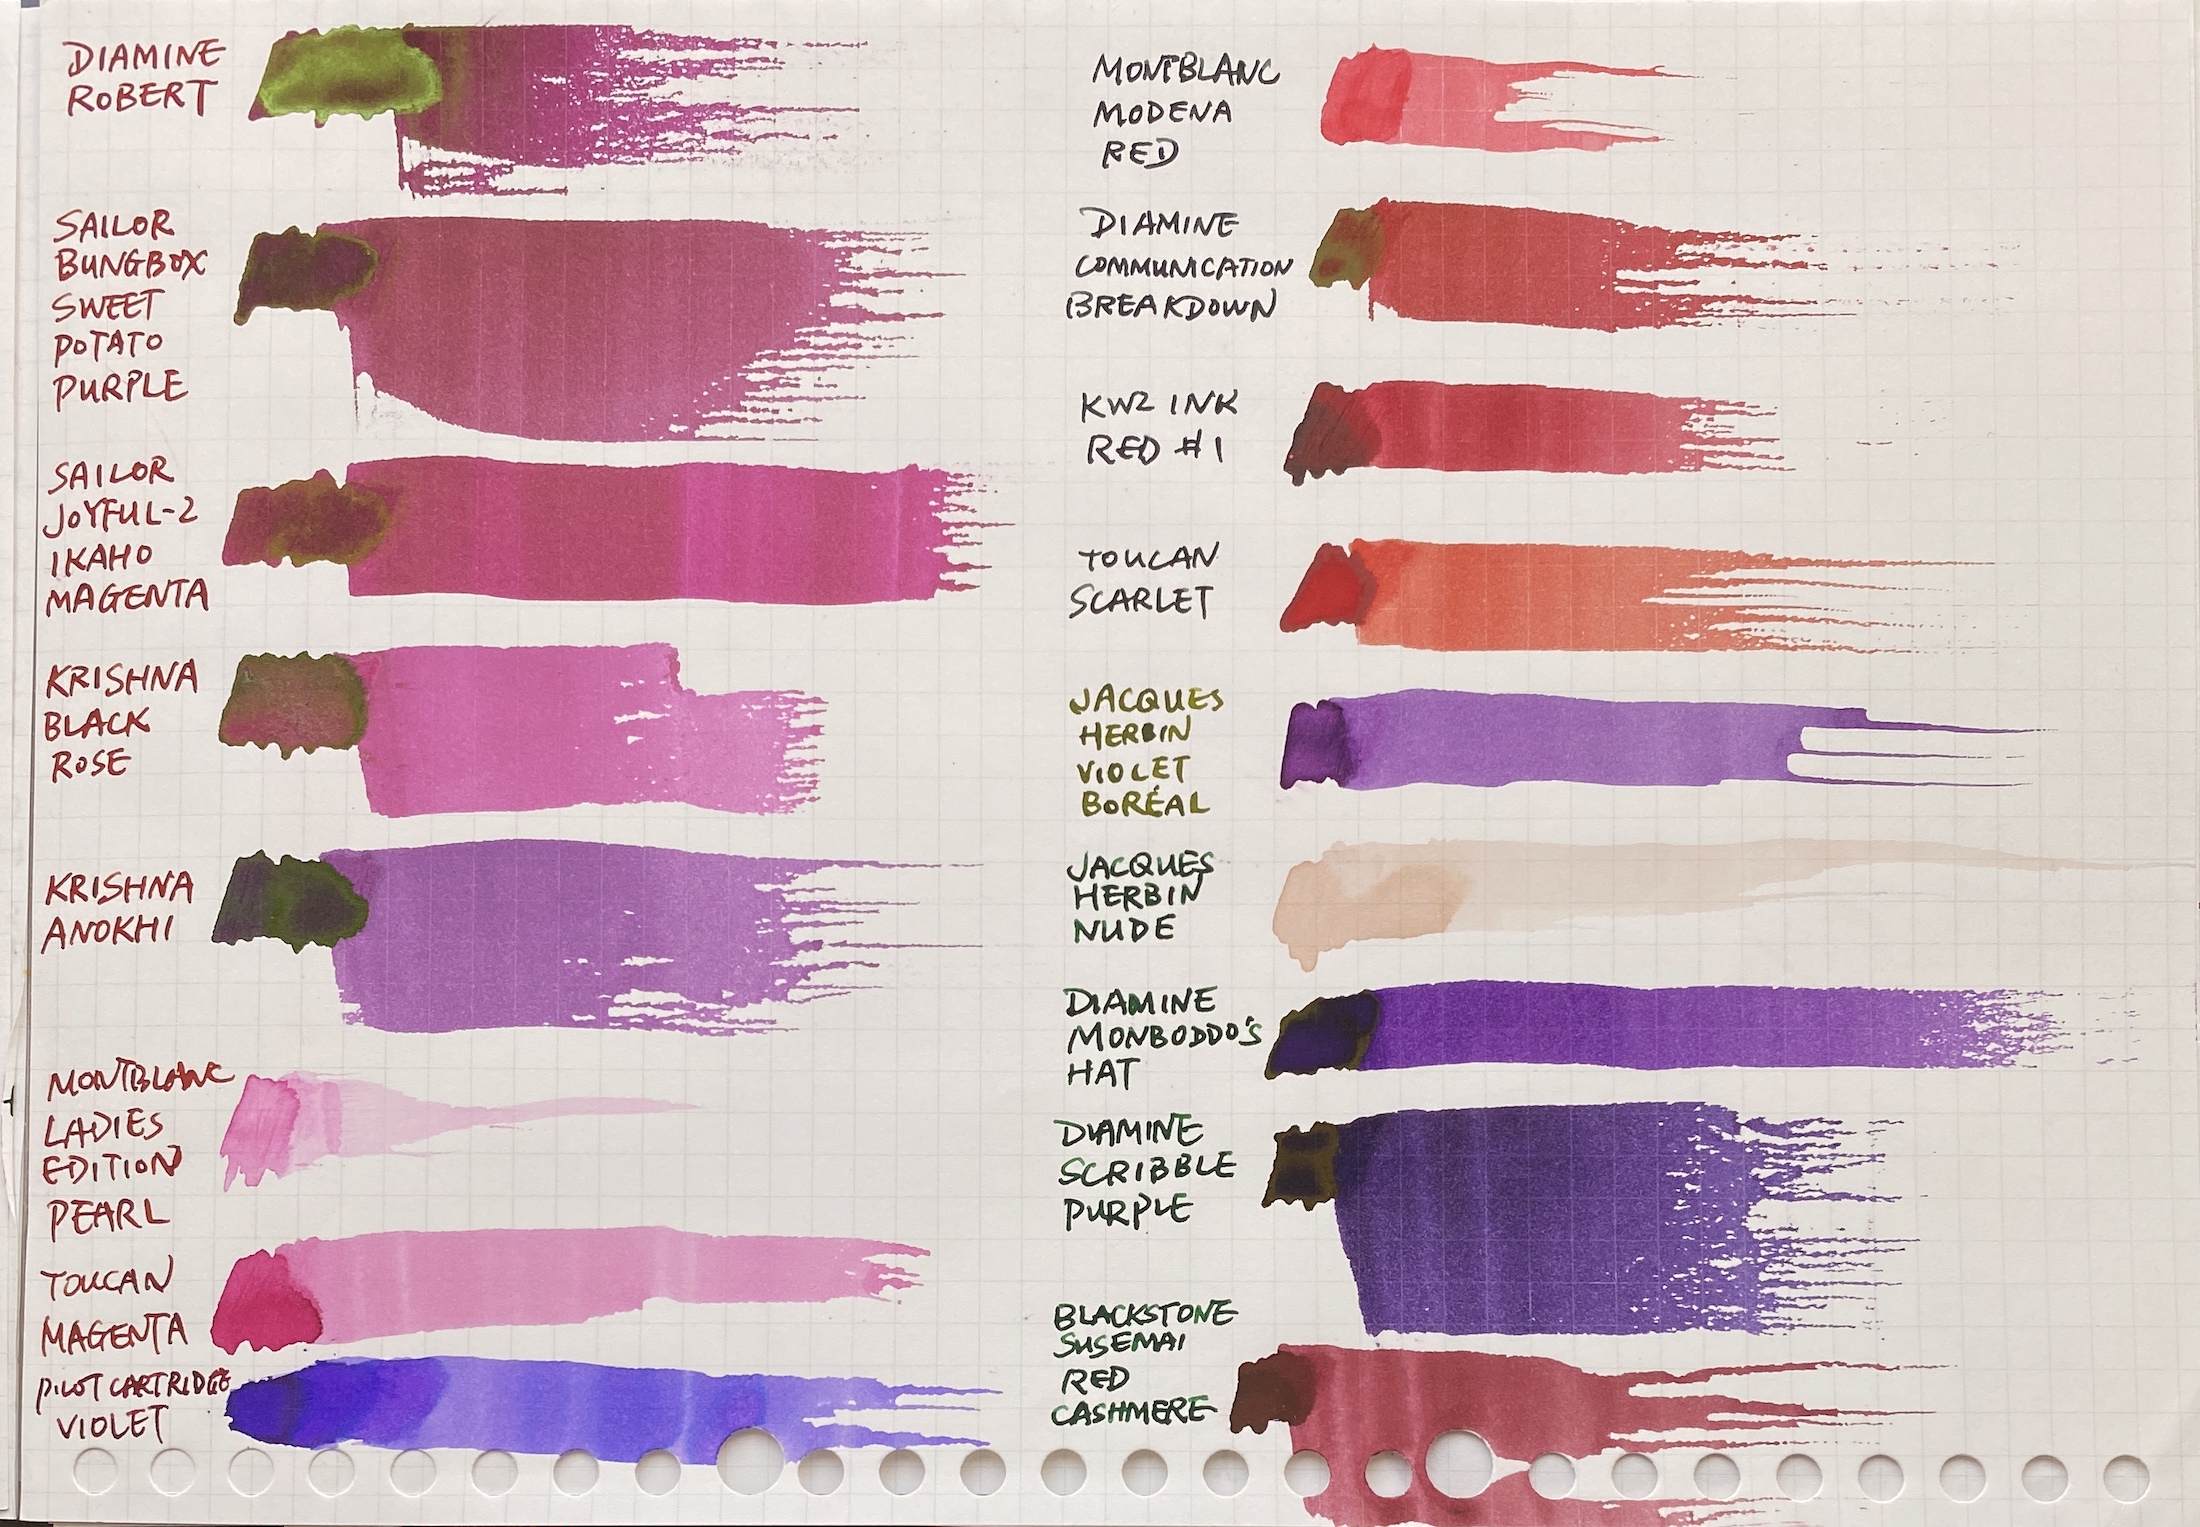 DIAMINE
ROBERT
SAILOR
BUNGBOX
SWEET
POTATO
PURPLE
SAILOR
JOYFUL-2
IKAHO
MAGENTA
KRISHNA
BLACK
ROSE
KRISHNA
ANOKHI
MONTBLANC
LADIES
EDITION
PEARL
TOUCAN
MAGENTA
PILOT CARTRIDGE
VIOLET
MONTBLANC
MODENA
RED
DIAMINE
COMMUNICATION
BREAKDOWN
KWZ INK
RED #1
TOUCAN
SCARLET
JACQUES
HERBIN
VIOLET
BORÉAL
JACQUES
HERBIN
NUDE
DIAMINE
MONBODDO'S
HAT
DIAMINE
SCRIBBLE
PURPLE
BLACKSTONE
SUSEMAI
RED
CASHMERE